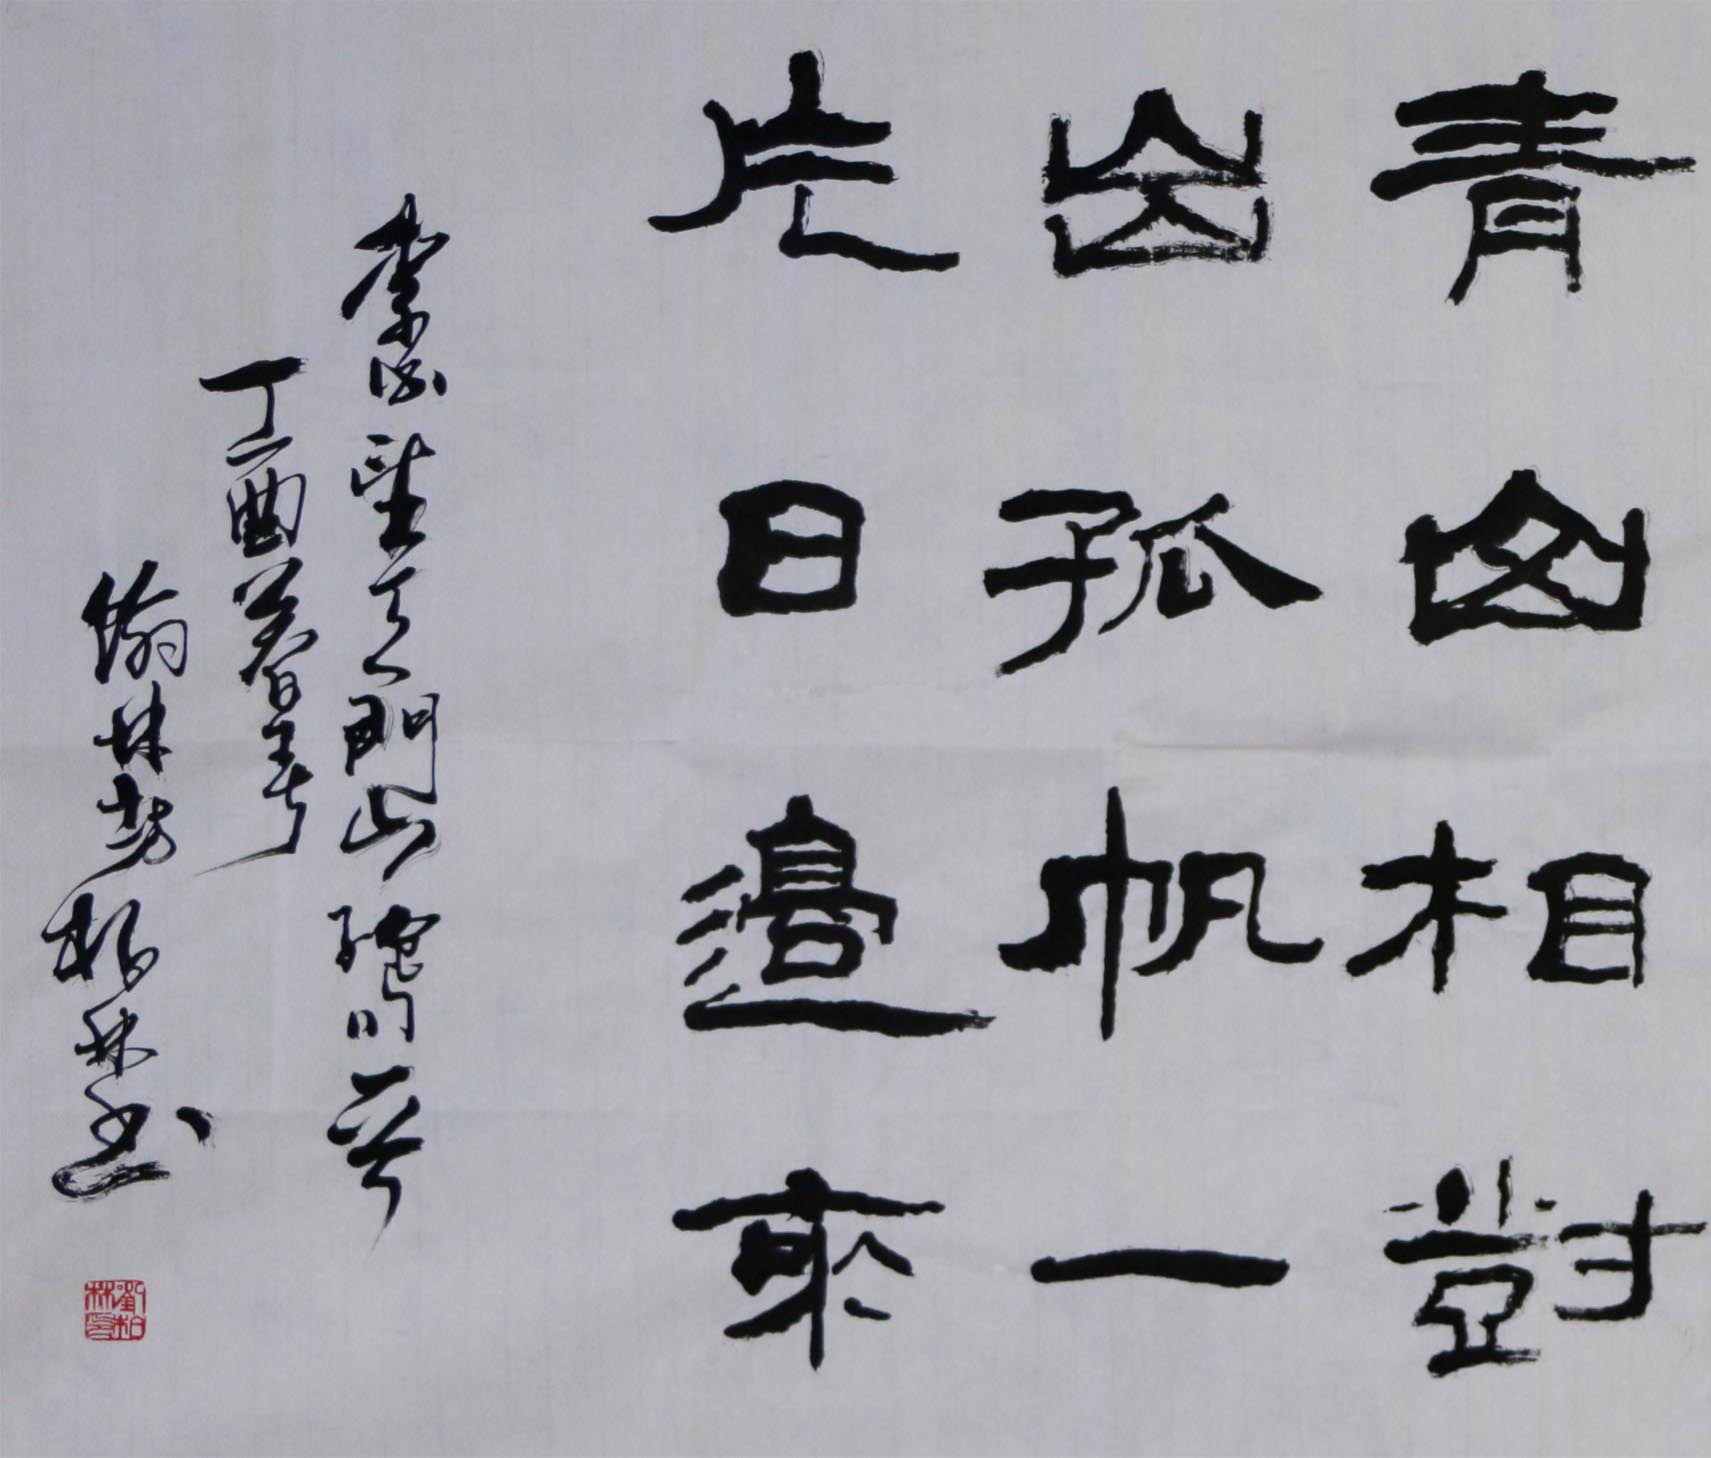 青山相對
出孤帆一
片日邊來
李白望天門山絕句一首
丁酉暮春
柏林書
劉柏林印